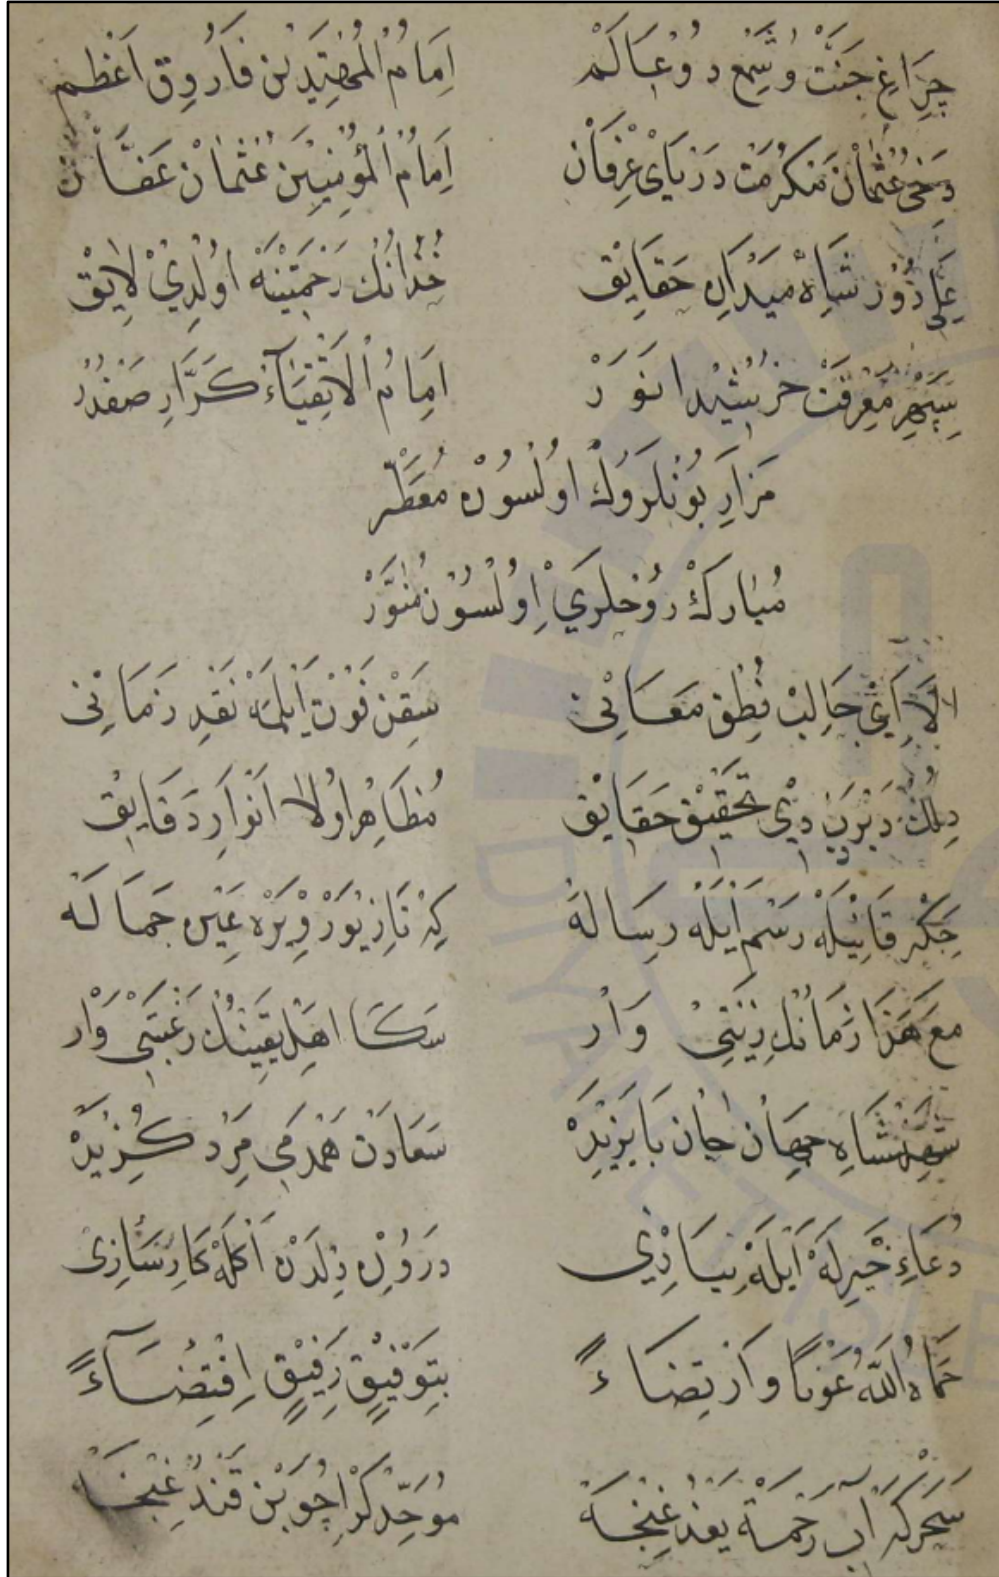 چِرَاغِ جَنَّتْ وُ شَمْعِ دُوعَالَمْ اِمَامُ الْمُهْتَدِينْ فَارُوقِ اَعْظَمْ
دَخِى عُثْمَانْ مَكْرُمَتْ دَرْيَاىْ عِرْفَانْ اِمَامُ الْمُؤْمِنِينَ عُثْمَانْ عَفَّانْ
عَلِى دُرْ شَاهْ مَيْدَانِ حَقَايِقْ خُدَانُكْ رَحْمَتِينَهْ اُولْدِيْ لَايِقْ
سِپِهْرِ مَعْرِفَتْ خُرْشِيدِ انْوَرْ اِمَامُ الْاَتْقِيَاءْ كَرَّارِ صَفْدَرْ
مَزَارِ بُونْلَرُوكْ اُولْسُونْ مُعَطَّرْ
مُبَارَكْ رُوحْلَرِيْ اُولْسُونْ مُنَوَّرْ
اَلَا اَىْ جَالِبْ نُطْقِ مَعَانِى سَقِنْ فَوْتْ اَيْلَمَهْ نَقْدِ زَمَانِى
دِلُكْ دِيْ تَحْقِيقِ حَقَايِقْ مُظَاهِرْ اُولَا اَنْوَارِ دَقَايِقْ
جِكَرْ قَانِيلَهْ رَسْمْ اَيْلَهْ رِسَالَهْ كِهْ زِيوَرْ وِيرَهْ عَيْنِ جَمَالَهْ
مَعَ هَذَا زَمَانُكْ زِينَتِى وَارْ سَكَا اهْلِ يَقِينُكْ رَغْبَتِى وَارْ
شَهِنْشَاهِ جِهَانْ جَانْ بَايَزِيدْ سَعَادَتْ هَمْدَمِى مَرْدِ كُزِيدَهْ
دُعَاءِ خَيْرِلَهْ اَيْلَهْ نِيَازِى دَرُونِ دِلْدَنْ اَكْلَهْ كَارِسَازِى
حَمَاهُ اللّٰهُ عَوْنًا وَارْتِضَاءً بِتَوْفِيقٍ رَفِيقٍ اِقْتِضَاءً
سَحَرْ كِهْ آبِ رَحْمَتْ غُنْجَهْ مُوَحِّدْلَرْ اِچُونْ قَنْدِ غُنْجَهْ